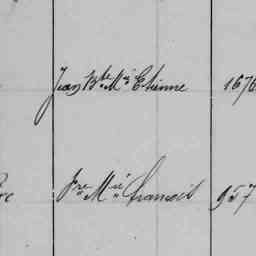 Jean Bte Mie Etienne 1676
re Fre Mie Francois 957